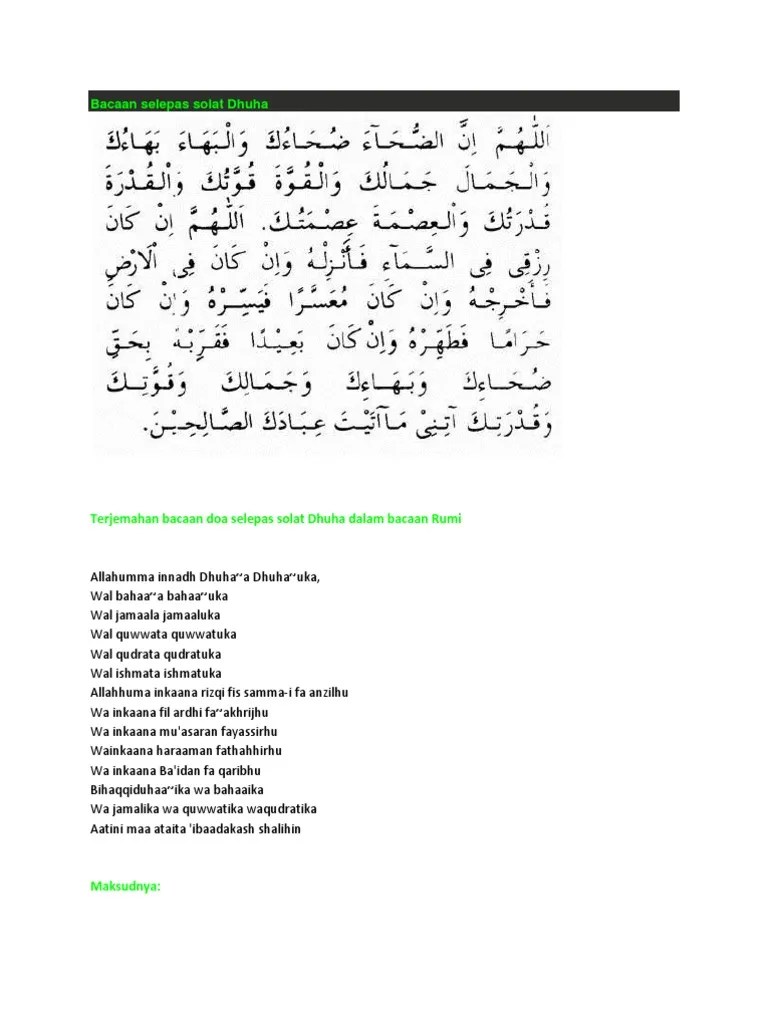 Bacaan selepas solat Dhuha
اَللّٰهُمَّ اِنَّ الضُّحَآءَ ضُحَاءُكَ وَالْبَهَاءَ بَهَاءُكَ
وَالْجَمَالَ جَمَالُكَ وَالْقُوَّةَ قُوَّتُكَ وَالْقُدْرَةَ
قُدْرَتُكَ وَالْعِصْمَةَ عِصْمَتُكَ. اَللّٰهُمَّ اِنْ كَانَ
رِزْقِى فِى السَّمَآءِ فَأَنْزِلْهُ وَاِنْ كَانَ فِى اْلاَرْضِ
فَأَخْرِجْهُ وَاِنْ كَانَ مُعَسَّرًا فَيَسِّرْهُ وَاِنْ كَانَ
حَرَامًا فَطَهِّرْهُ وَاِنْ كَانَ بَعِيْدًا فَقَرِّبْهُ بِحَقِّ
ضُحَاءِكَ وَبَهَاءِكَ وَجَمَالِكَ وَقُوَّتِكَ
وَقُدْرَتِكَ آتِنِىْ مَآآتَيْتَ عِبَادَكَ الصَّالِحِيْنَ.
Terjemahan bacaan doa selepas solat Dhuha dalam bacaan Rumi
Allahumma innadh Dhuha~a Dhuha~uka,
Wal bahaa~a bahaa~uka
Wal jamaala jamaaluka
Wal quwwata quwwatuka
Wal qudrata qudratuka
Wal ishmata ishmatuka
Allahhuma inkaana rizqi fis samma-i fa anzilhu
Wa inkaana fil ardhi fa~akhrijhu
Wa inkaana mu'asaran fayassirhu
Wainkaana haraaman fathahhirhu
Wa inkaana Ba'idan fa qaribhu
Bihaqqiduhaa~ika wa bahaaika
Wa jamalika wa quwwatika waqudratika
Aatini maa ataita 'ibaadakash shalihin
Maksudnya: